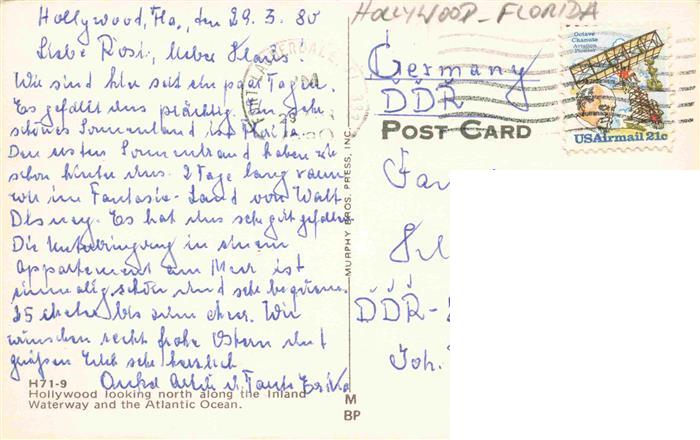 Hollywood, Fla, den 29.3.80
Liebe Rosi, lieber Klaus!
Wir sind hier seit ein paar Tagen.
Es gefällt uns prächtig. Ein sehr
schönes Sonnenland ist Florida.
Den ersten Sonnenbrand haben wir
schon hinter uns. 2 Tage lang waren
wir im Fantasie-Land von Walt
Disney. Es hat uns sehr gut gefallen.
Die Unterbringung in einem
Appartement am Meer ist
einmalig schön und sehr bequem.
25 bis zum Wir
wünschen recht frohe Ostern und
grüßen Euch sehr herzlich
Onkel u. Tante
H71-9
Hollywood looking north along the Inland
Waterway and the Atlantic Ocean.
MURPHY BROS. PRESS, INC.
M
BP
HOLLYWOOD - FLORIDA
Germany
DDR
POST CARD
Fam
DDR-
Joh.
FORT LAUDERDALE, FL
PM
29
Octave
Chanute
Aviation
Pioneer
USAirmail 21c